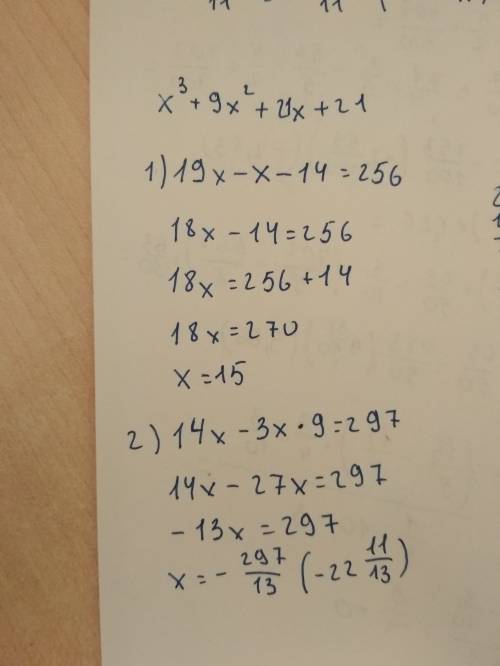 11 11 (
x³ + 9x² + 21x + 21
1) 19x - x - 14 = 256
18x - 14 = 256
18x = 256 + 14
18x = 270
x = 15
2) 14x - 3x · 9 = 297
14x - 27x = 297
- 13x = 297
x = - 297/13 (-22 11/13)